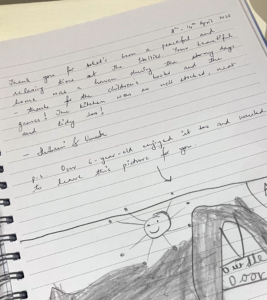 8th - 14th April
Thank you for what's been a peaceful and
relaxing time at the Your beautiful
home was a haven during the stormy days
- thanks for the children's books and the
games! The kitchen was so well stocked, neat
and tidy too!
P.S. Our 6-year-old enjoyed it too and wanted
to leave this picture for you
Durdle
Door